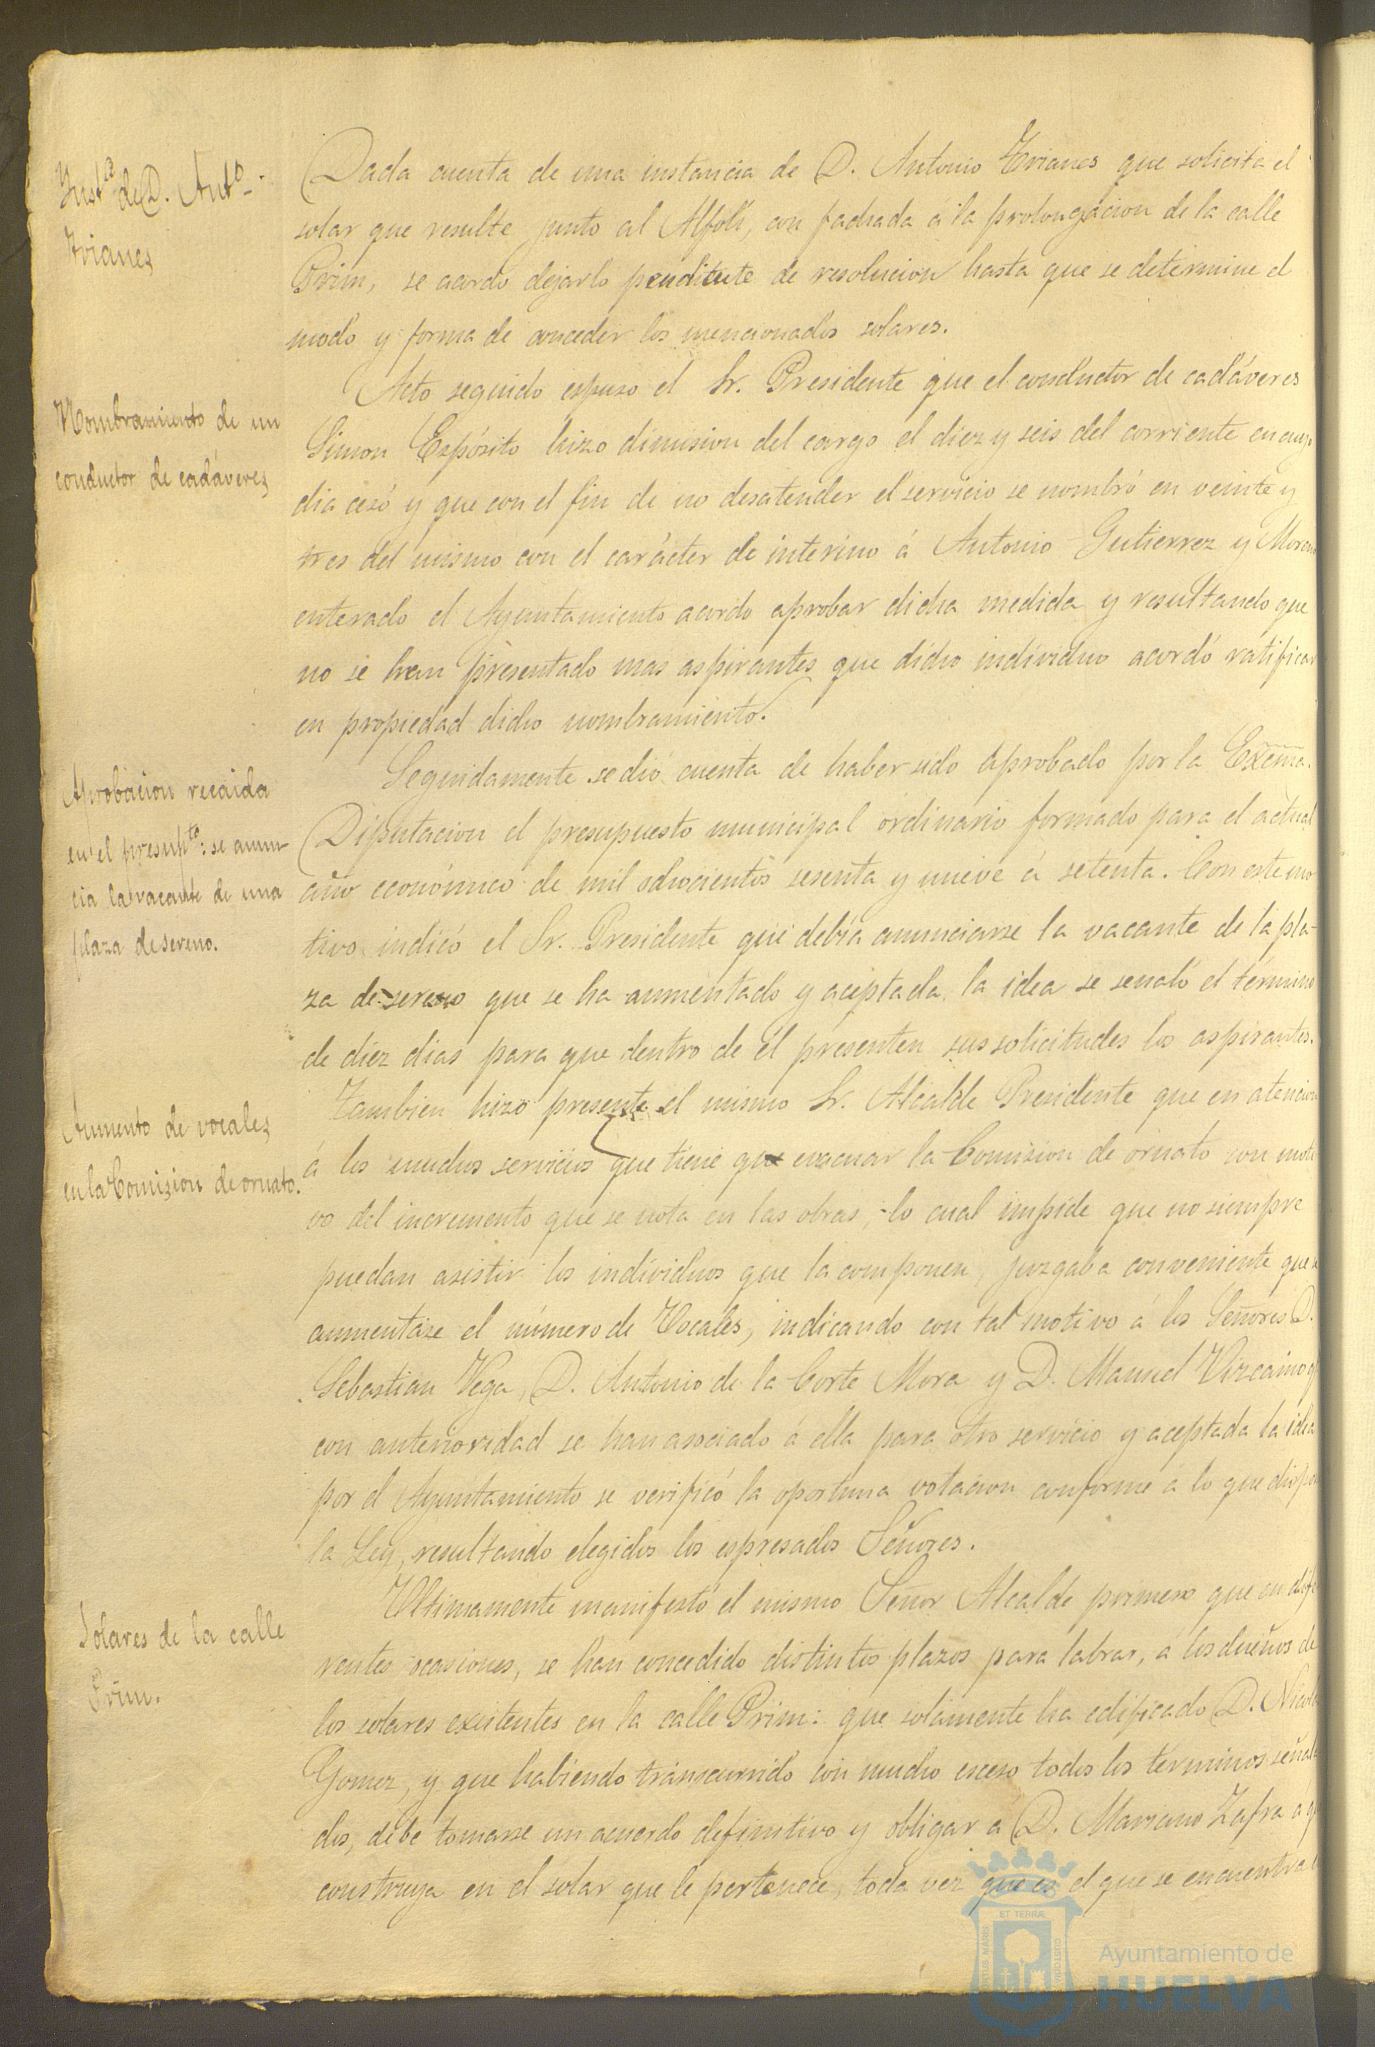 Inst.ª de D. Ant.º
Trianes
Dada cuenta de una instancia de D. Antonio Trianes que solicita el
solar que resulte junto al Alfolí, con fachada á la prolongacion de la calle
Prim, se acordo dejarlo pendiente de resolucion hasta que se determine el
modo y forma de conceder los mencionados solares.
Nombramiento de un
conductor de cadáveres
Acto seguido espuso el Sr. Presidente que el conductor de cadáveres
Simon Expósito hizo dimision del cargo el diez y seis del corriente en cuyo
dia cesó y que con el fin de no desatender el servicio se nombró en veinte y
tres del mismo con el carácter de interino á Antonio Gutierrez y Moreno
enterado el Ayuntamiento acordo aprobar dicha medida y resultando que
no se han presentado mas aspirantes que dicho individuo acordó ratificar
en propiedad dicho nombramiento.
Aprobacion recaida
en el presup.to: se anun-
cia la vacante de una
plaza de sereno.
Seguidamente se dió cuenta de haber sido aprobado por la Excma.
Diputacion el presupuesto municipal ordinario formado para el actual
año económico de mil ochocientos sesenta y nueve á setenta. Con este mo
tivo indicó el Sr. Presidente que debia anunciarse la vacante de la pla-
za de sereno que se ha aumentado y aceptada la idea se señaló el término
de diez dias para que dentro de él presenten sus solicitudes los aspirantes.
Aumento de vocales
en la Comision de ornato.
Tambien hizo presente el mismo Sr. Alcalde Presidente que en atencion
á los muchos servicios que tiene que evacuar la Comision de ornato con moti
vo del incremento que se nota en las obras, lo cual impide que no siempre
puedan asistir los individuos que la componen, juzgaba conveniente que se
aumentase el número de Vocales, indicando con tal motivo á los Señores D.
Sebastian Vega, D. Antonio de la Corte Mora y D. Manuel Vizcaino q
con anterioridad se han asociado á ella para otro servicio y aceptada la idea
por el Ayuntamiento se verificó la oportuna votacion conforme á lo que dispone
la Ley, resultando elegidos los espresados Señores.
Solares de la calle
Prim.
Ultimamente manifestó el mismo Señor Alcalde primero que en dife
rentes ocasiones, se han concedido distintos plazos para labrar, á los dueños de
los solares existentes en la calle Prim: que solamente ha edificado D. Nicolas
Gomez, y que habiendo transcurrido con mucho esceso todos los términos señala
dos, debe tomarse un acuerdo definitivo y obligar á D. Mariano Zafra a q
construya en el solar que le pertenece, toda vez que es el que se encuentra
Ayuntamiento de
HUELVA